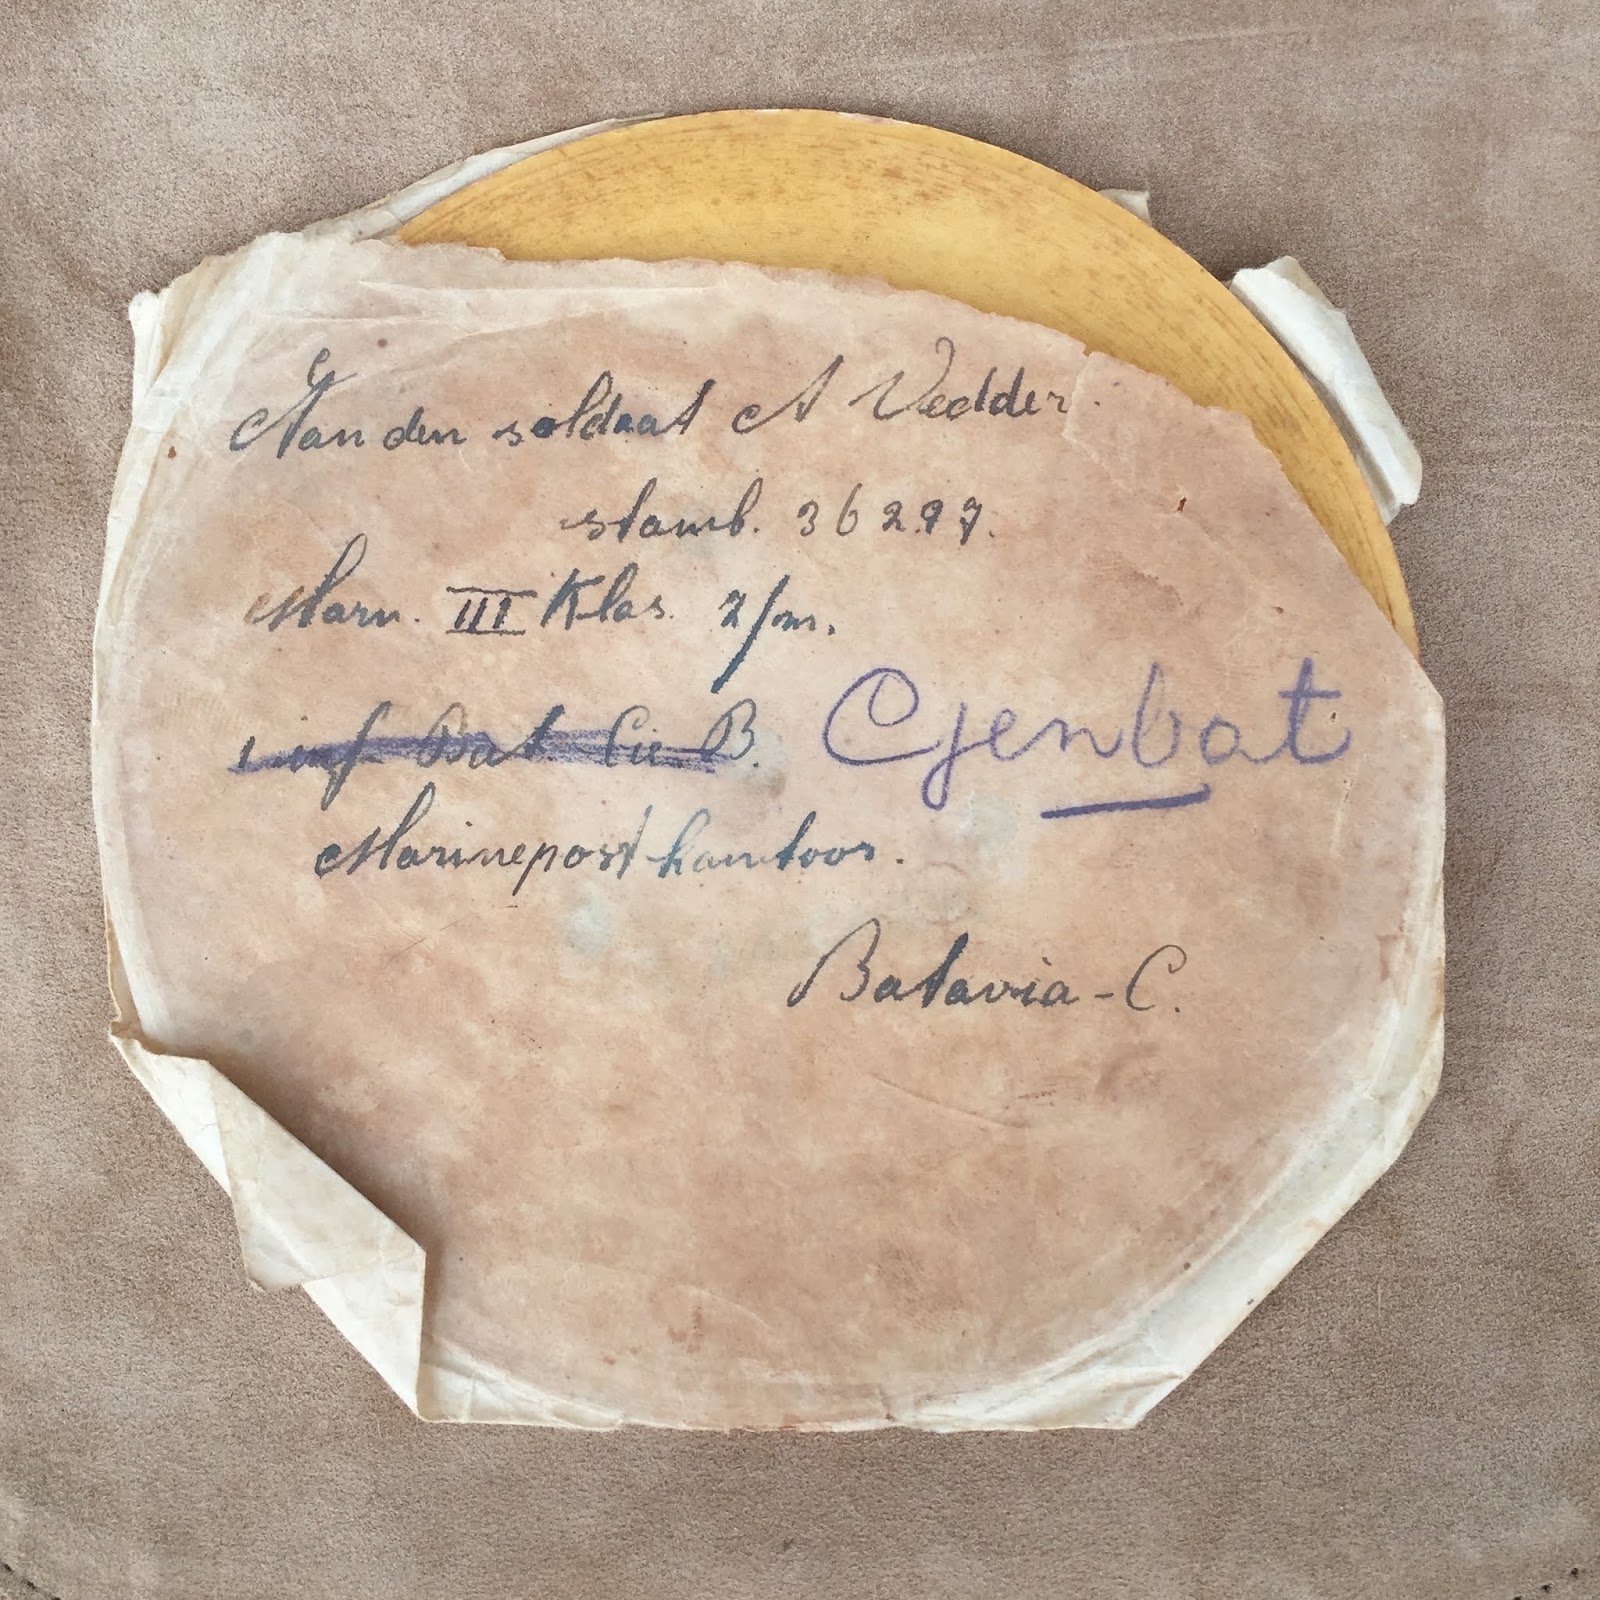 Aan den soldaat A Vedder.
stamb. 36297.
Marn. III Klas. z/m.
1 inf. Bat Cie B. Cjenbat
Marinepostkantoor.
Batavia - C.